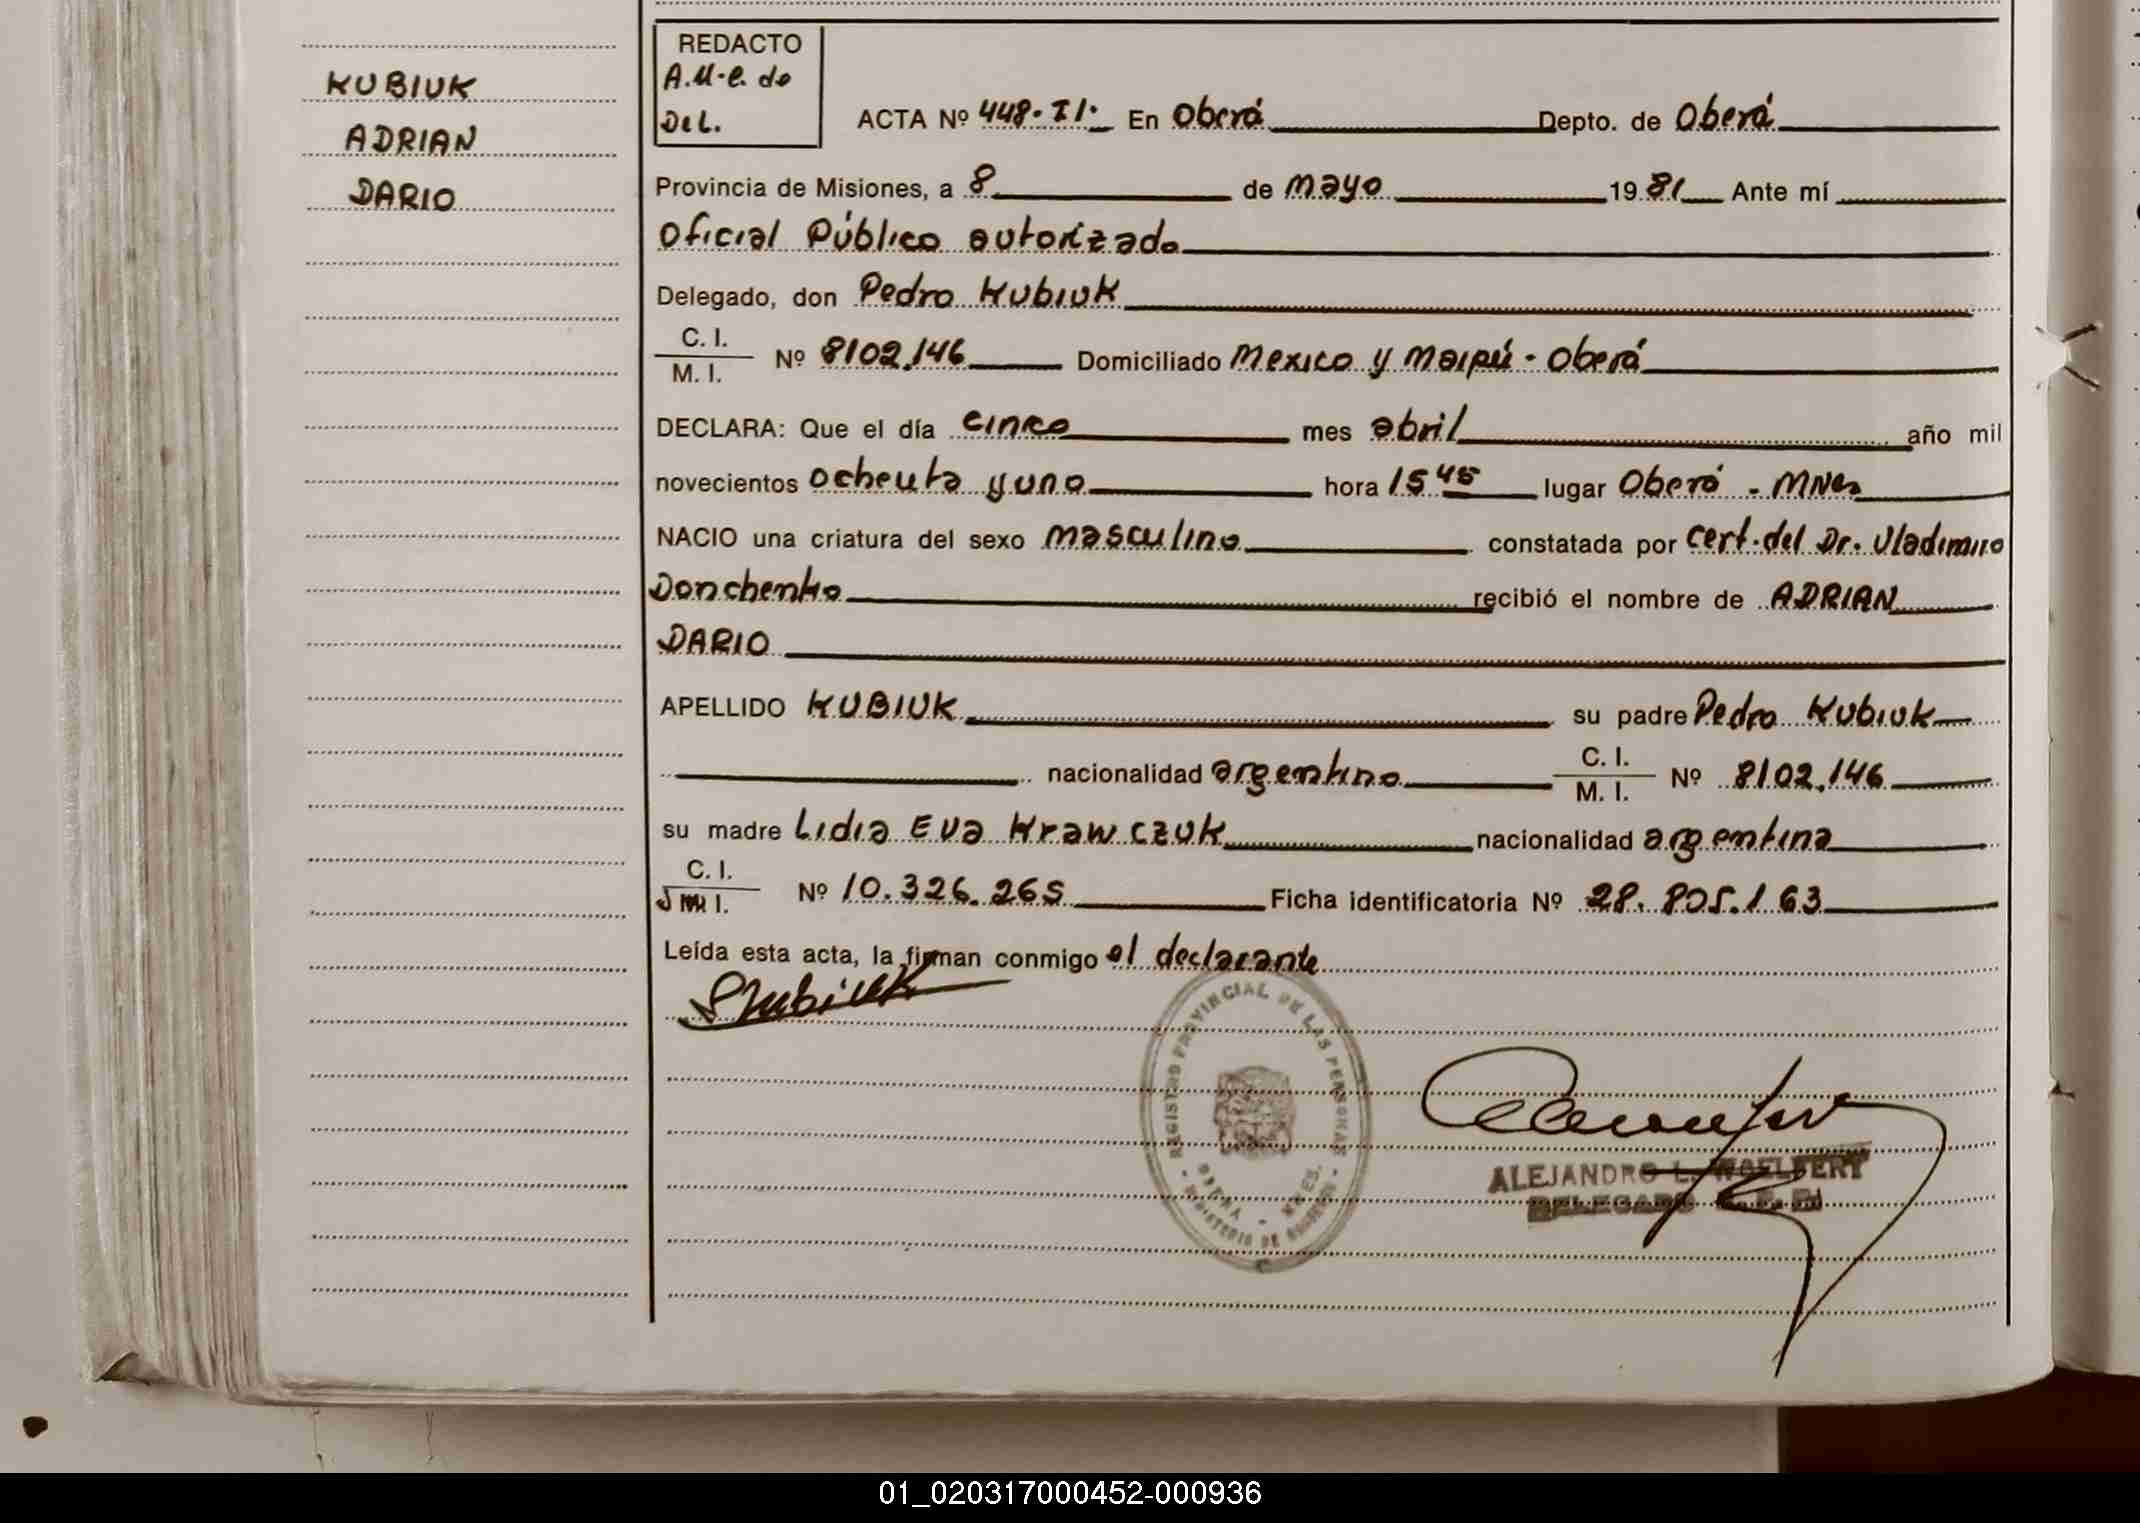 KUBIUK
ADRIAN
DARIO
REDACTO
A.M.C. de
Del.
ACTA Nº 448-TI. En Oberá Depto. de Oberá
Provincia de Misiones, a 8 de mayo 1981 Ante mí
Oficial Público autorizado
Delegado, don Pedro Kubiuk
C. I.
M. I. Nº 8102.146 Domiciliado Mexico y Maipú - Oberá
DECLARA: Que el día cinco mes abril año mil
novecientos ochenta y uno hora 15 45 lugar Oberá - MNes
NACIO una criatura del sexo masculino constatada por cert. del Dr. Vladimiro
Donchenko recibió el nombre de ADRIAN
DARIO
APELLIDO KUBIUK su padre Pedro Kubiuk
nacionalidad argentino C. I. M. I. Nº 8102.146
su madre Lidia Eva Krawczuk nacionalidad argentina
C. I. Nº 10.326.265 Ficha identificatoria Nº 28.805.163
Leída esta acta, la firman conmigo el declarante
REGISTRO PROVINCIAL DE LAS PERSONAS
OBERA - MNES.
MINISTERIO DE GOBIERNO
ALEJANDRO L. WOELFERT
DELEGADO R. P. P.
01_020317000452-000936